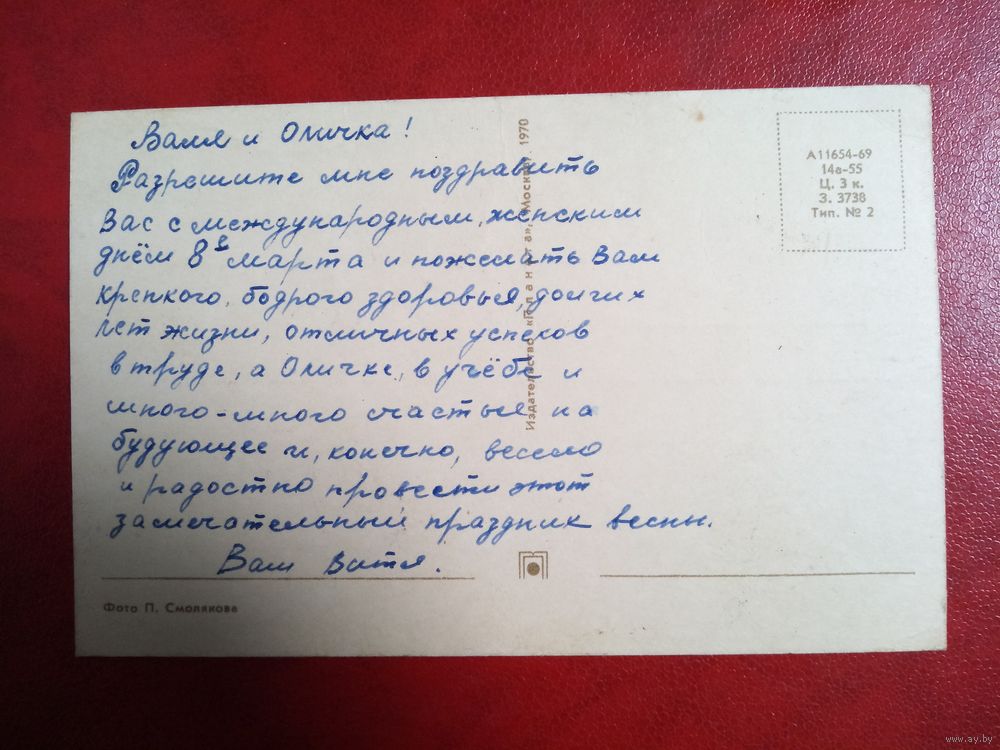 Валя и Оличка!
Разрешите мне поздравить
Вас с международным, женским
днём 8е марта и пожелать Вам
крепкого, бодрого здоровья, долгих
лет жизни, отличных успехов
в труде, а Оличке, в учёбе и
много-много счастья на
будующее и, конечно, весело
и радостно провести этот
замечательный праздник весны.
Ваш Витя.
Фото П. Смолякова
Издательство «Планета», Москва, 1970
А11654-69
14а-55
Ц. 3 к.
З. 3738
Тип. № 2
www.ay.by